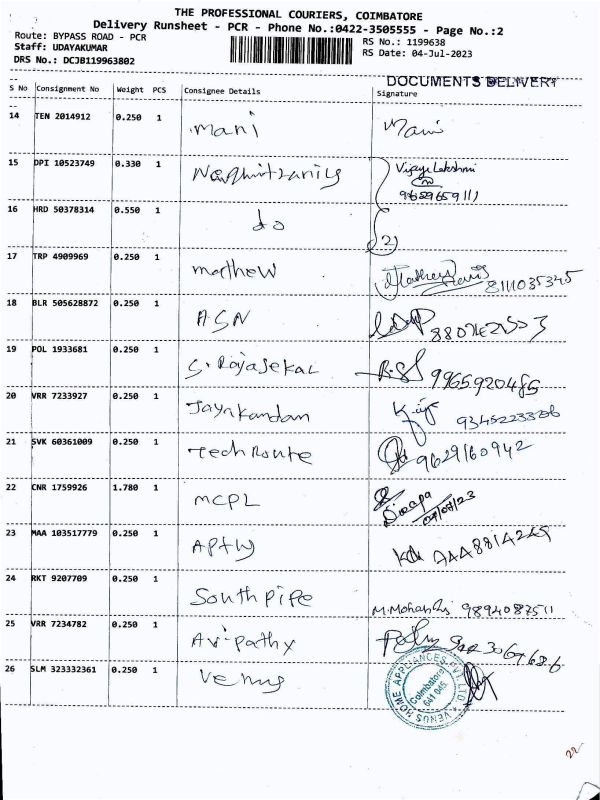 THE PROFESSIONAL COURIERS, COIMBATORE
Delivery Runsheet - PCR - Phone No.:0422-3505555 - Page No.:2
Route: BYPASS ROAD - PCR
RS No.: 1199638
Staff: UDAYAKUMAR
RS Date: 04-Jul-2023
DRS No.: DCJB119963802
DOCUMENTS DELIVERY
S No Consignment No Weight PCS Consignee Details Signature
14 TEN 2014912 0.250 1 Mani Mani
15 DPI 10523749 0.330 1 Vijaya Lakshmi
9629659111
16 HRD 50378314 0.550 1 do 2)
17 TRP 4909969 0.250 1 Mathew 8111035345
18 BLR 505628872 0.250 1 ASN
19 POL 1933681 0.250 1 S. Rajasekal 9965920485
20 VRR 7233927 0.250 1 Jaynkandam
21 SVK 60361009 0.250 1 Tech Route 9629160942
22 CNR 1759926 1.780 1 MCPL
04/07/23
23 MAA 103517779 0.250 1
24 RKT 9207709 0.250 1 South Pipe 9894087511
25 VRR 7234782 0.250 1
26 SLM 323332361 0.250 1 Venus
VENUS HOME APPLIANCES PVT. LTD.
Coimbatore
641 045.
22